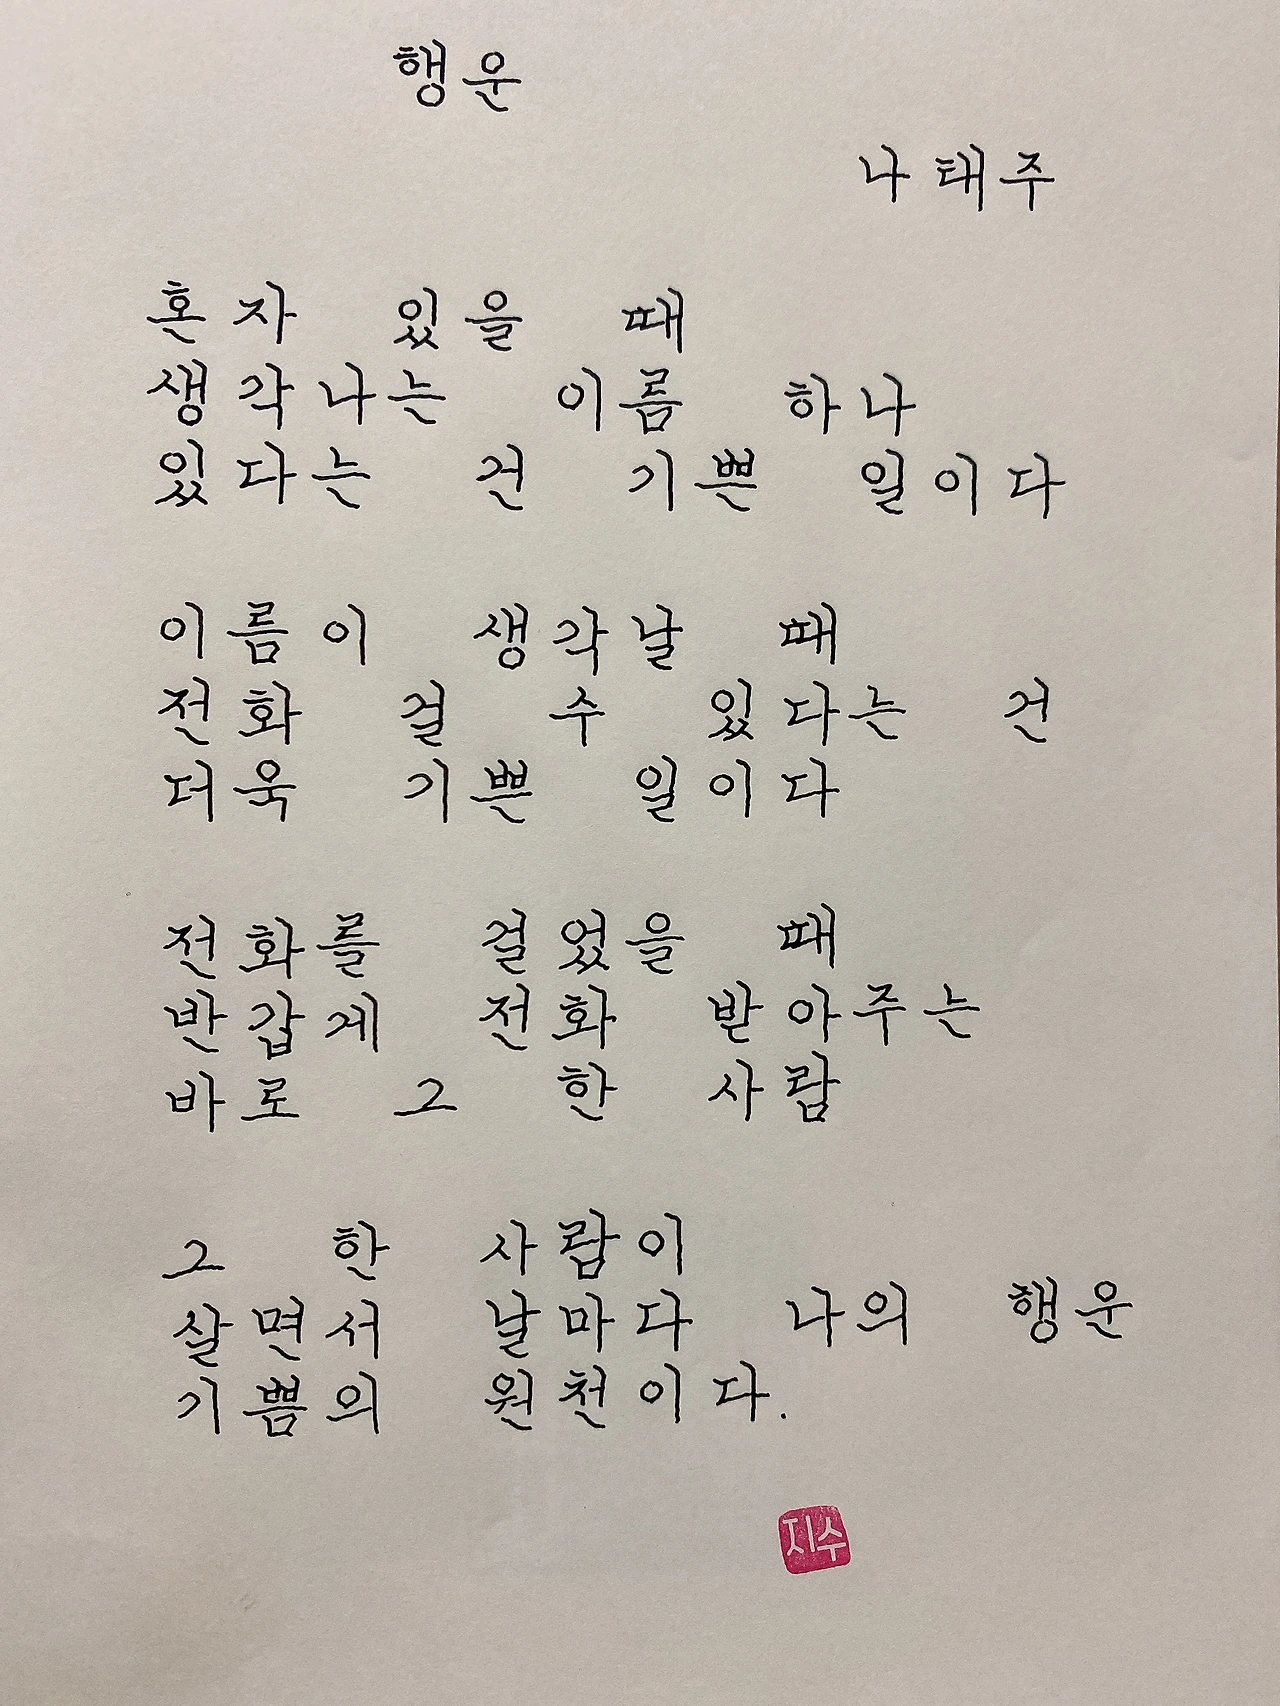 행운
나태주
혼자 있을 때
생각나는 이름 하나
있다는 건 기쁜 일이다
이름이 생각날 때
전화 걸 수 있다는 건
더욱 기쁜 일이다
전화를 걸었을 때
반갑게 전화 받아주는
바로 그 한 사람
그 한 사람이
살면서 날마다 나의 행운
기쁨의 원천이다.
지수